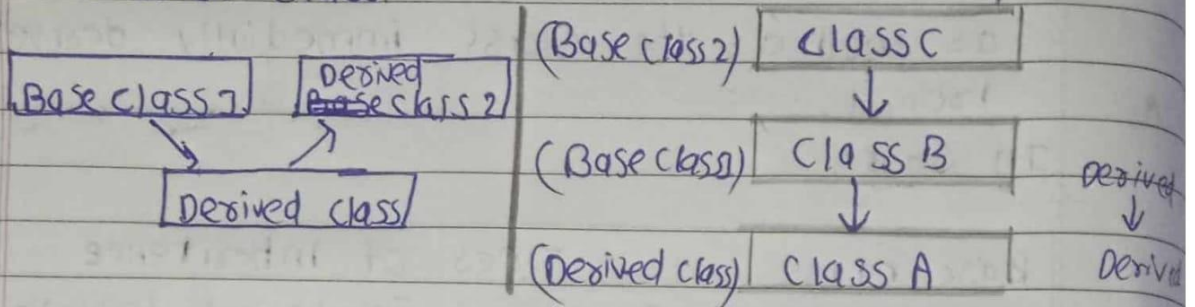 Base class 1
Derived
class 2
Derived class
(Base class 2) class C
(Base class 1) class B
(Derived class) class A
Derived